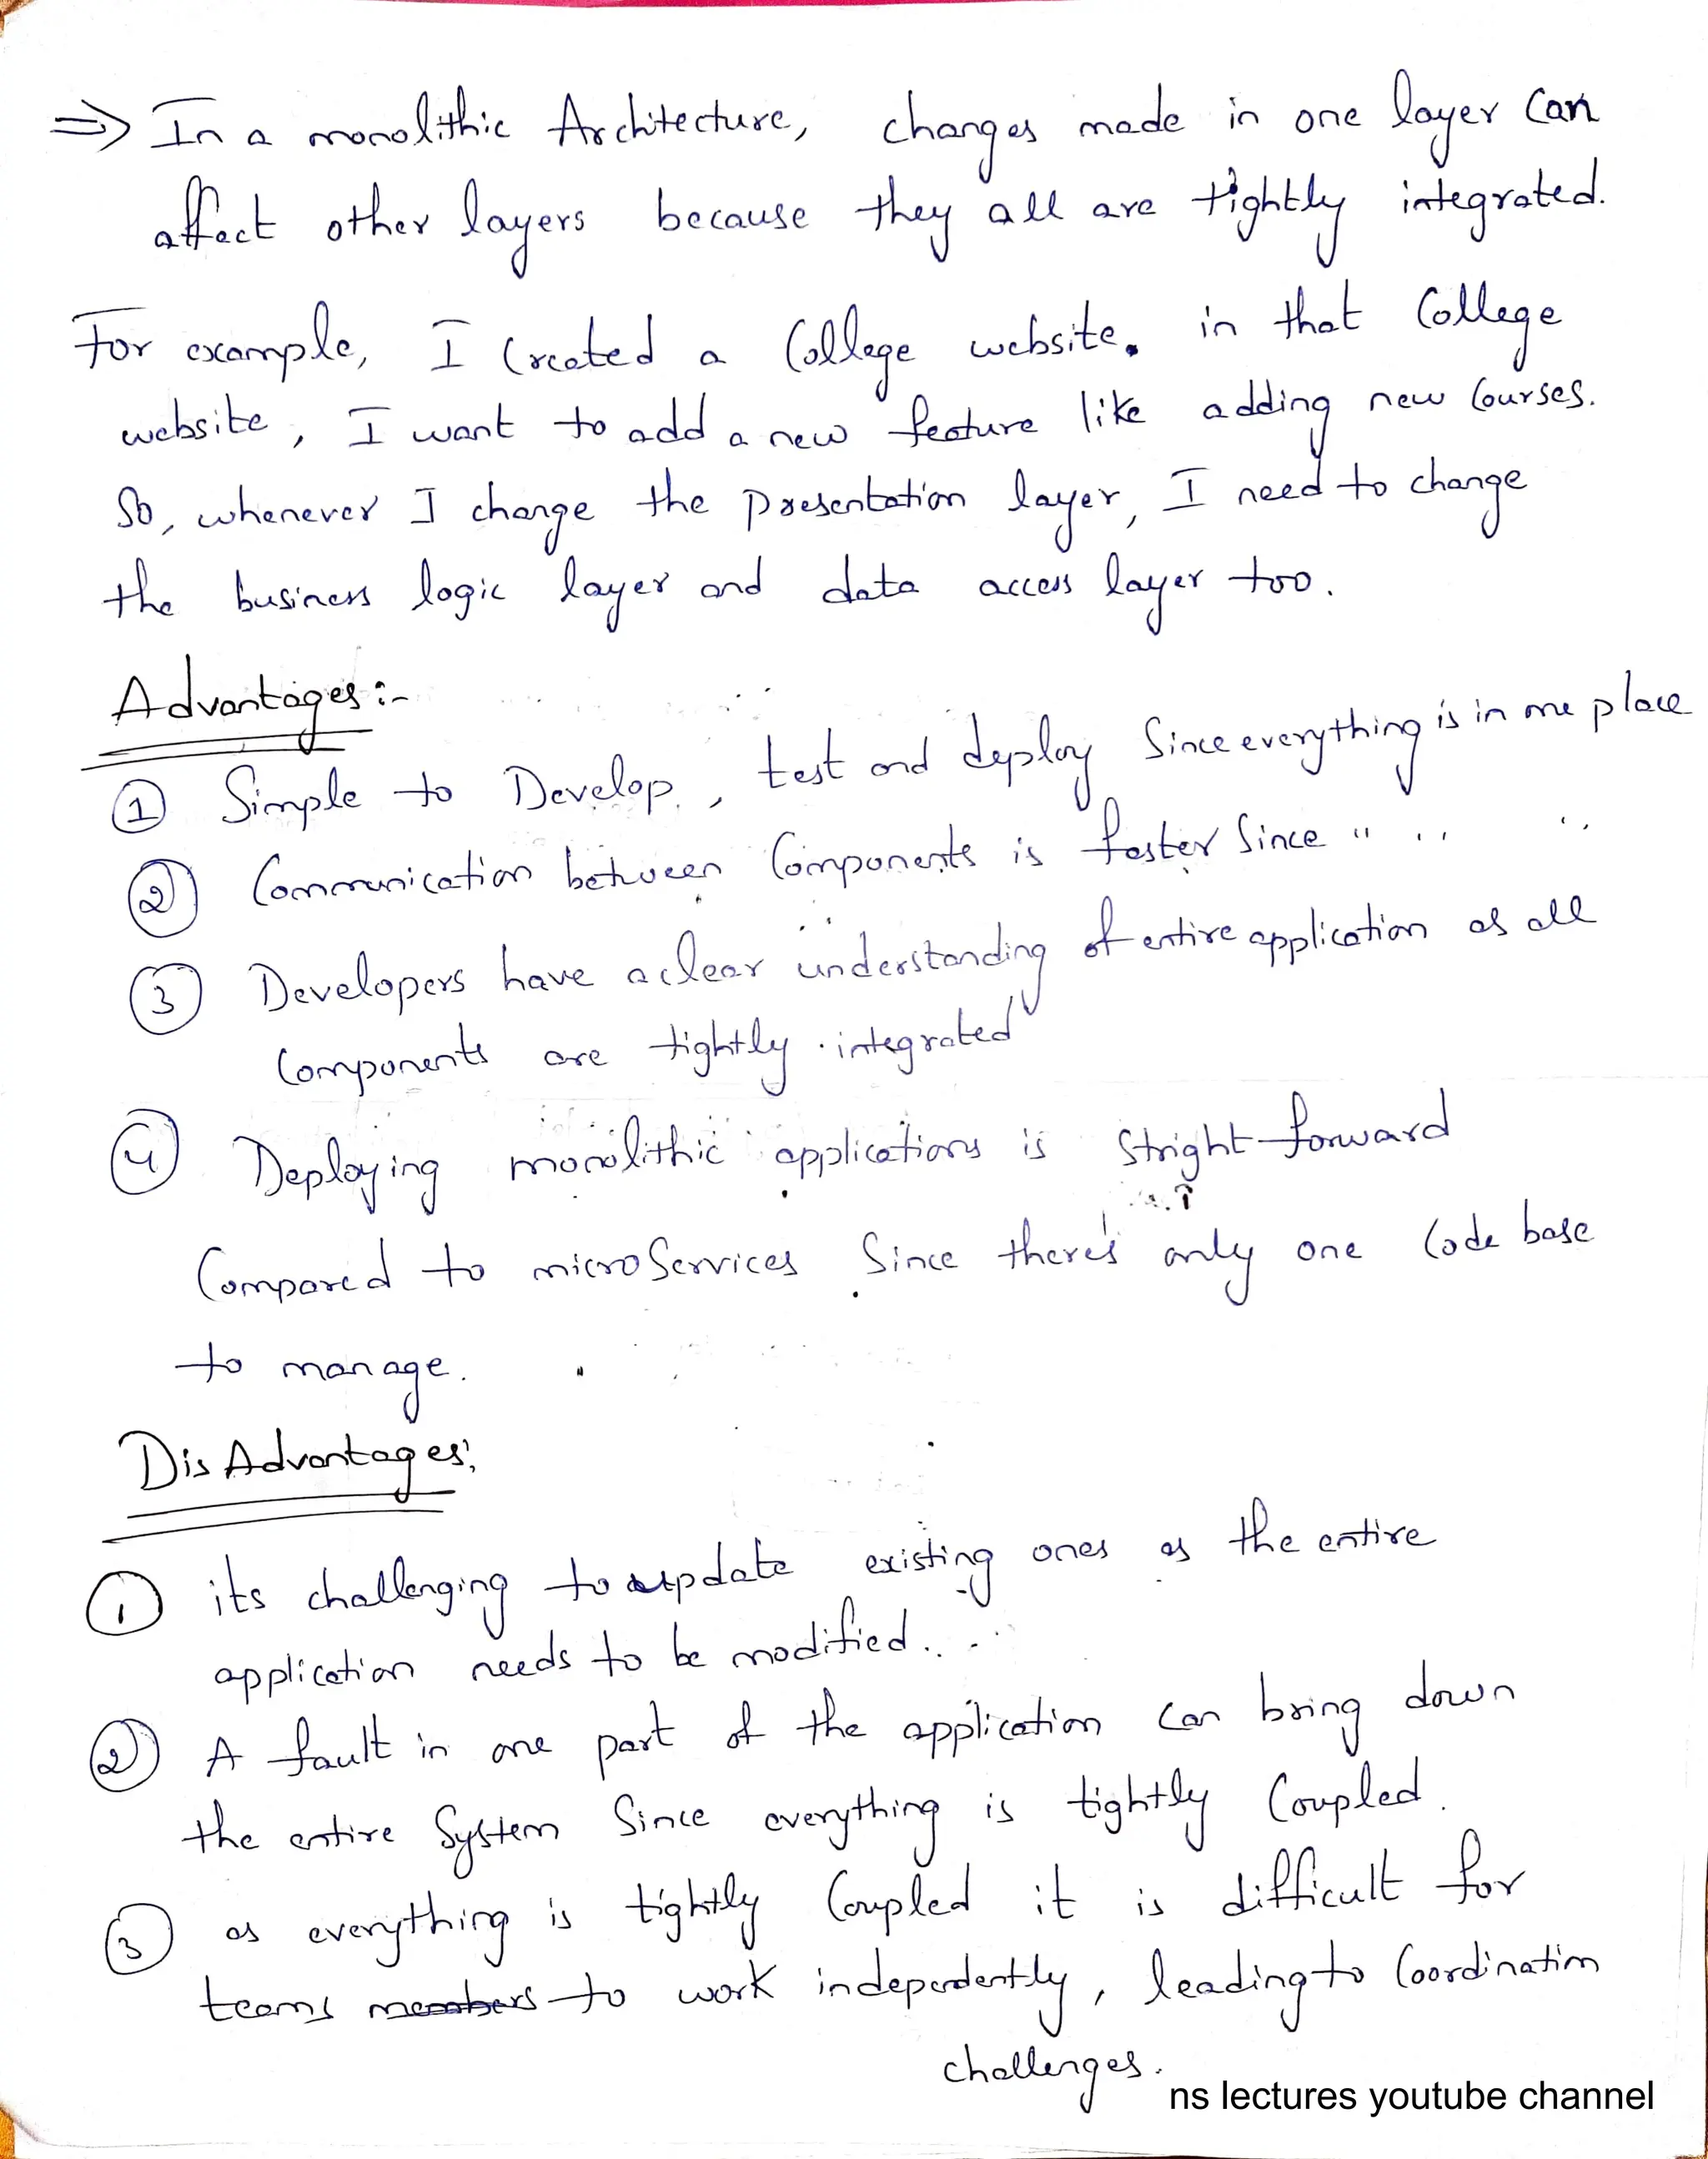 ⇒ In a monolithic Architecture, changes made in one layer can
affect other layers because they all are tightly integrated.
For example, I created a College website. in that College
website, I want to add a new feature like adding new Courses.
So, whenever I change the presentation layer, I need to change
the business logic layer and data access layer too.
Advantages:-
① Simple to Develop, test and deploy Since everything is in one place
② Communication between Components is faster Since " " "
③ Developers have a clear understanding of entire application as all
Components are tightly integrated
④ Deploying monolithic applications is Stright-forward
Compared to microServices Since there's only one Code base
to manage.
DisAdvantages:
① its challenging to update existing ones as the entire
application needs to be modified.
② A fault in one part of the application can bring down
the entire System Since everything is tightly Coupled.
③ as everything is tightly Coupled it is difficult for
teams members to work independently, leading to Coordination
challenges.
ns lectures youtube channel